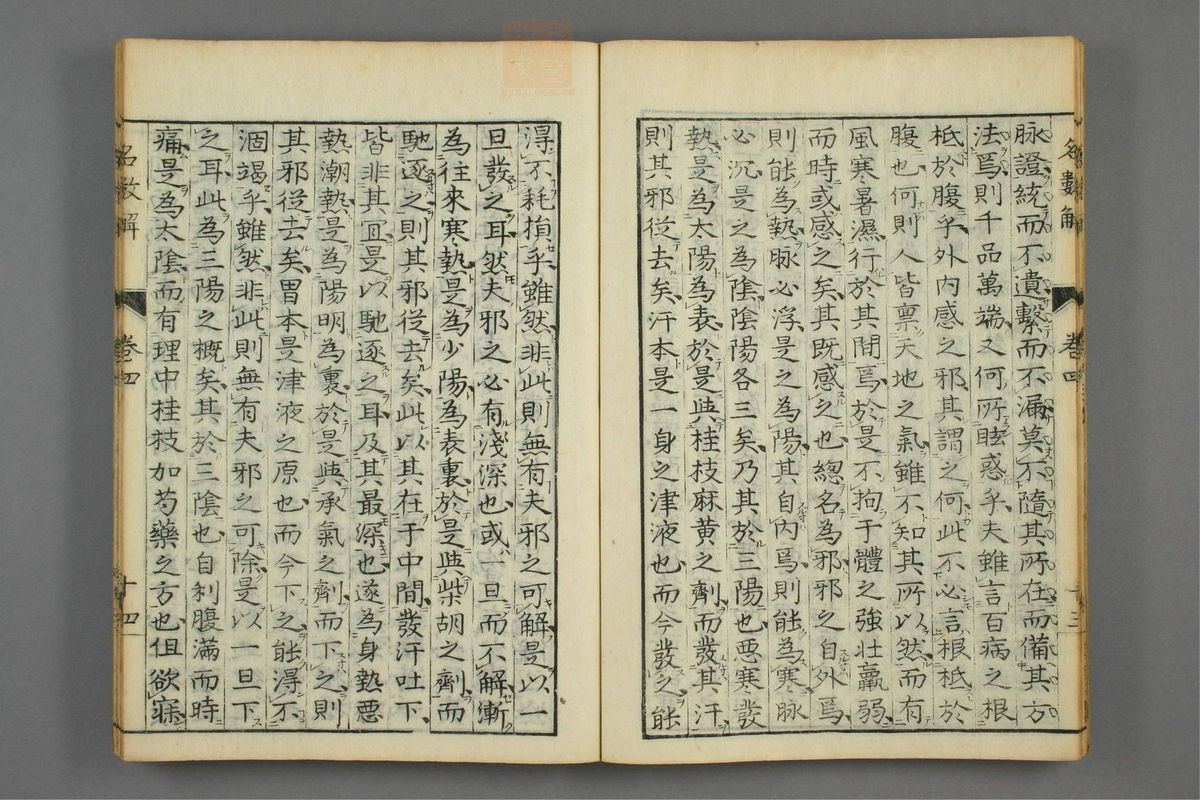 名數解 卷四 十三
脉證統而不遺繫而不漏莫不隨其所在而備其方
法焉則千品萬端又何所眩惑乎夫雖言百病之根
柢於腹乎外內感之邪其謂之何此不必言根柢於
腹也何則人皆稟天地之氣雖不知其所以然而有
風寒暑濕行於其間焉於是不拘于體之強壯羸弱
而時或感之矣其既感之也總名為邪邪之自外焉
則能為熱脉必浮是之為陽其自內焉則能為寒脉
必沉是之為陰陰陽各三矣乃其於三陽也惡寒發
熱是為太陽為表於是與桂枝麻黃之劑而發其汗
則其邪從去矣汗本是一身之津液也而今發之能
得不耗損乎雖然非此則無有夫邪之可解是以一
旦發之耳然夫邪之必有淺深也或一旦而不解漸
為往來寒熱是為少陽為表裏於是與柴胡之劑而
馳逐之則其邪從去矣此以其在于中間發汗吐下
皆非其宜是以馳逐之耳及其最深也遂為身熱惡
熱潮熱是為陽明為裏於是與承氣之劑而下之則
其邪從去矣胃本是津液之原也而今下之能得不
涸竭乎雖然非此則無有夫邪之可除是以一旦下
之耳此為三陽之概矣其於三陰也自利腹滿而時
痛是為太陰而有理中桂枝加芍藥之方也但欲寐
名數解 卷四 十四